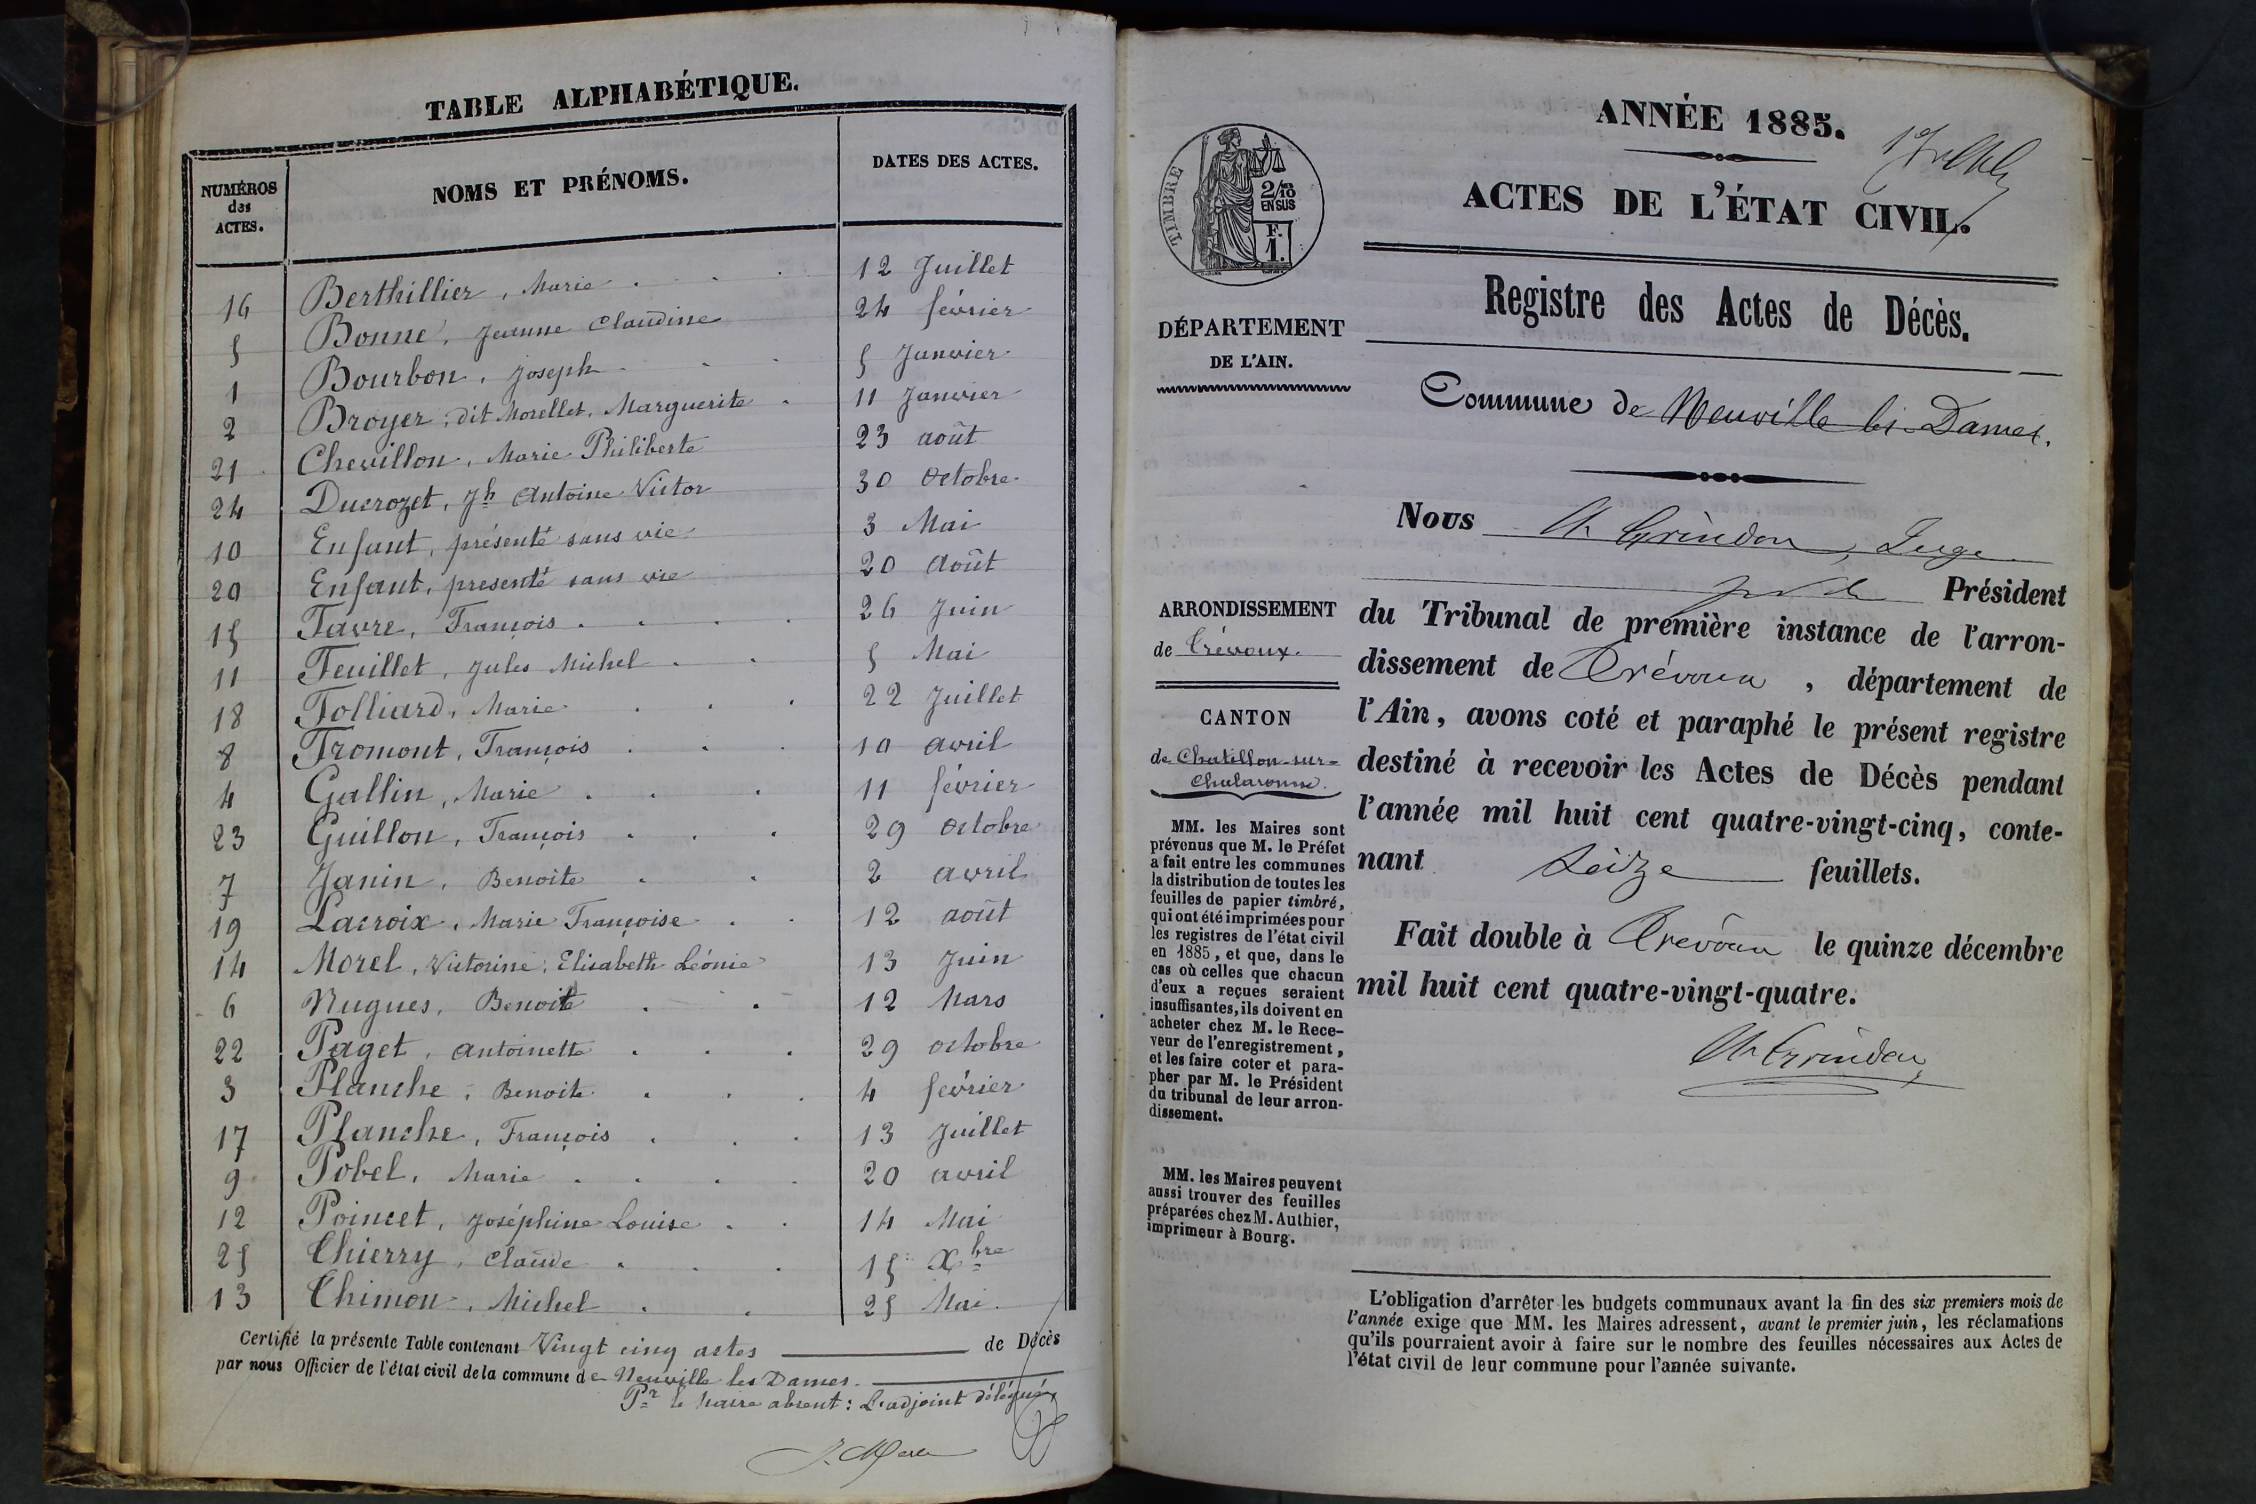 TABLE ALPHABÉTIQUE.
NUMÉROS
des
ACTES.
NOMS ET PRÉNOMS.
DATES DES ACTES.
16 Berthillier, Marie 12 Juillet
5 Bonne, Jeanne Claudine 24 février
1 Bourbon, Joseph 5 Janvier
2 Broyer, dit Morellet, Marguerite 11 Janvier
21 Chevillon, Marie Philiberte 23 août
24 Ducrozet, Jh Antoine Victor 30 octobre
10 Enfant, présenté sans vie 3 Mai
20 Enfant, présenté sans vie 20 août
15 Favre, François 26 Juin
11 Feuillet, Jules Michel 5 Mai
18 Folliard, Marie 22 Juillet
8 Fromont, François 10 avril
4 Gallin, Marie 11 février
23 Guillon, François 29 octobre
7 Janin, Benoite 2 avril
19 Lacroix, Marie Françoise 12 août
14 Morel, Victorine, Elisabeth Léonie 13 Juin
6 Nugues, Benoit 12 Mars
22 Paget, Antoinette 29 octobre
3 Planche, Benoite 4 février
17 Planche, François 13 Juillet
9 Pobel, Marie 20 avril
12 Poincet, Joséphine Louise 14 Mai
25 Thierry, Claude 15 Xbre
13 Thimon, Michel 25 Mai
Certifié la présente Table contenant Vingt cinq actes de Décès
par nous Officier de l'état civil de la commune de Neuville les Dames.
Pr le Maire absent: L'adjoint délégué,
ANNÉE 1885.
ACTES DE L'ÉTAT CIVIL.
TIMBRE
2/10
EN SUS
F.
1.
Registre des Actes de Décès.
DÉPARTEMENT
DE L'AIN.
Commune de Neuville les Dames.
Nous Ch Grindon, Juge
Président
du Tribunal de première instance de l'arron-
dissement de Trévoux, département de
l'Ain, avons coté et paraphé le présent registre
destiné à recevoir les Actes de Décès pendant
l'année mil huit cent quatre-vingt-cinq, conte-
nant seize feuillets.
Fait double à Trévoux le quinze décembre
mil huit cent quatre-vingt-quatre.
Ch Grindon
ARRONDISSEMENT
de Trévoux.
CANTON
de Chatillon-sur-
Chalaronne.
MM. les Maires sont
prévenus que M. le Préfet
a fait entre les communes
la distribution de toutes les
feuilles de papier timbré,
qui ont été imprimées pour
les registres de l'état civil
en 1885, et que, dans le
cas où celles que chacun
d'eux a reçues seraient
insuffisantes, ils doivent en
acheter chez M. le Rece-
veur de l'enregistrement,
et les faire coter et para-
pher par M. le Président
du tribunal de leur arron-
dissement.
MM. les Maires peuvent
aussi trouver des feuilles
préparées chez M. Authier,
imprimeur à Bourg.
L'obligation d'arrêter les budgets communaux avant la fin des six premiers mois de
l'année exige que MM. les Maires adressent, avant le premier juin, les réclamations
qu'ils pourraient avoir à faire sur le nombre des feuilles nécessaires aux Actes de
l'état civil de leur commune pour l'année suivante.